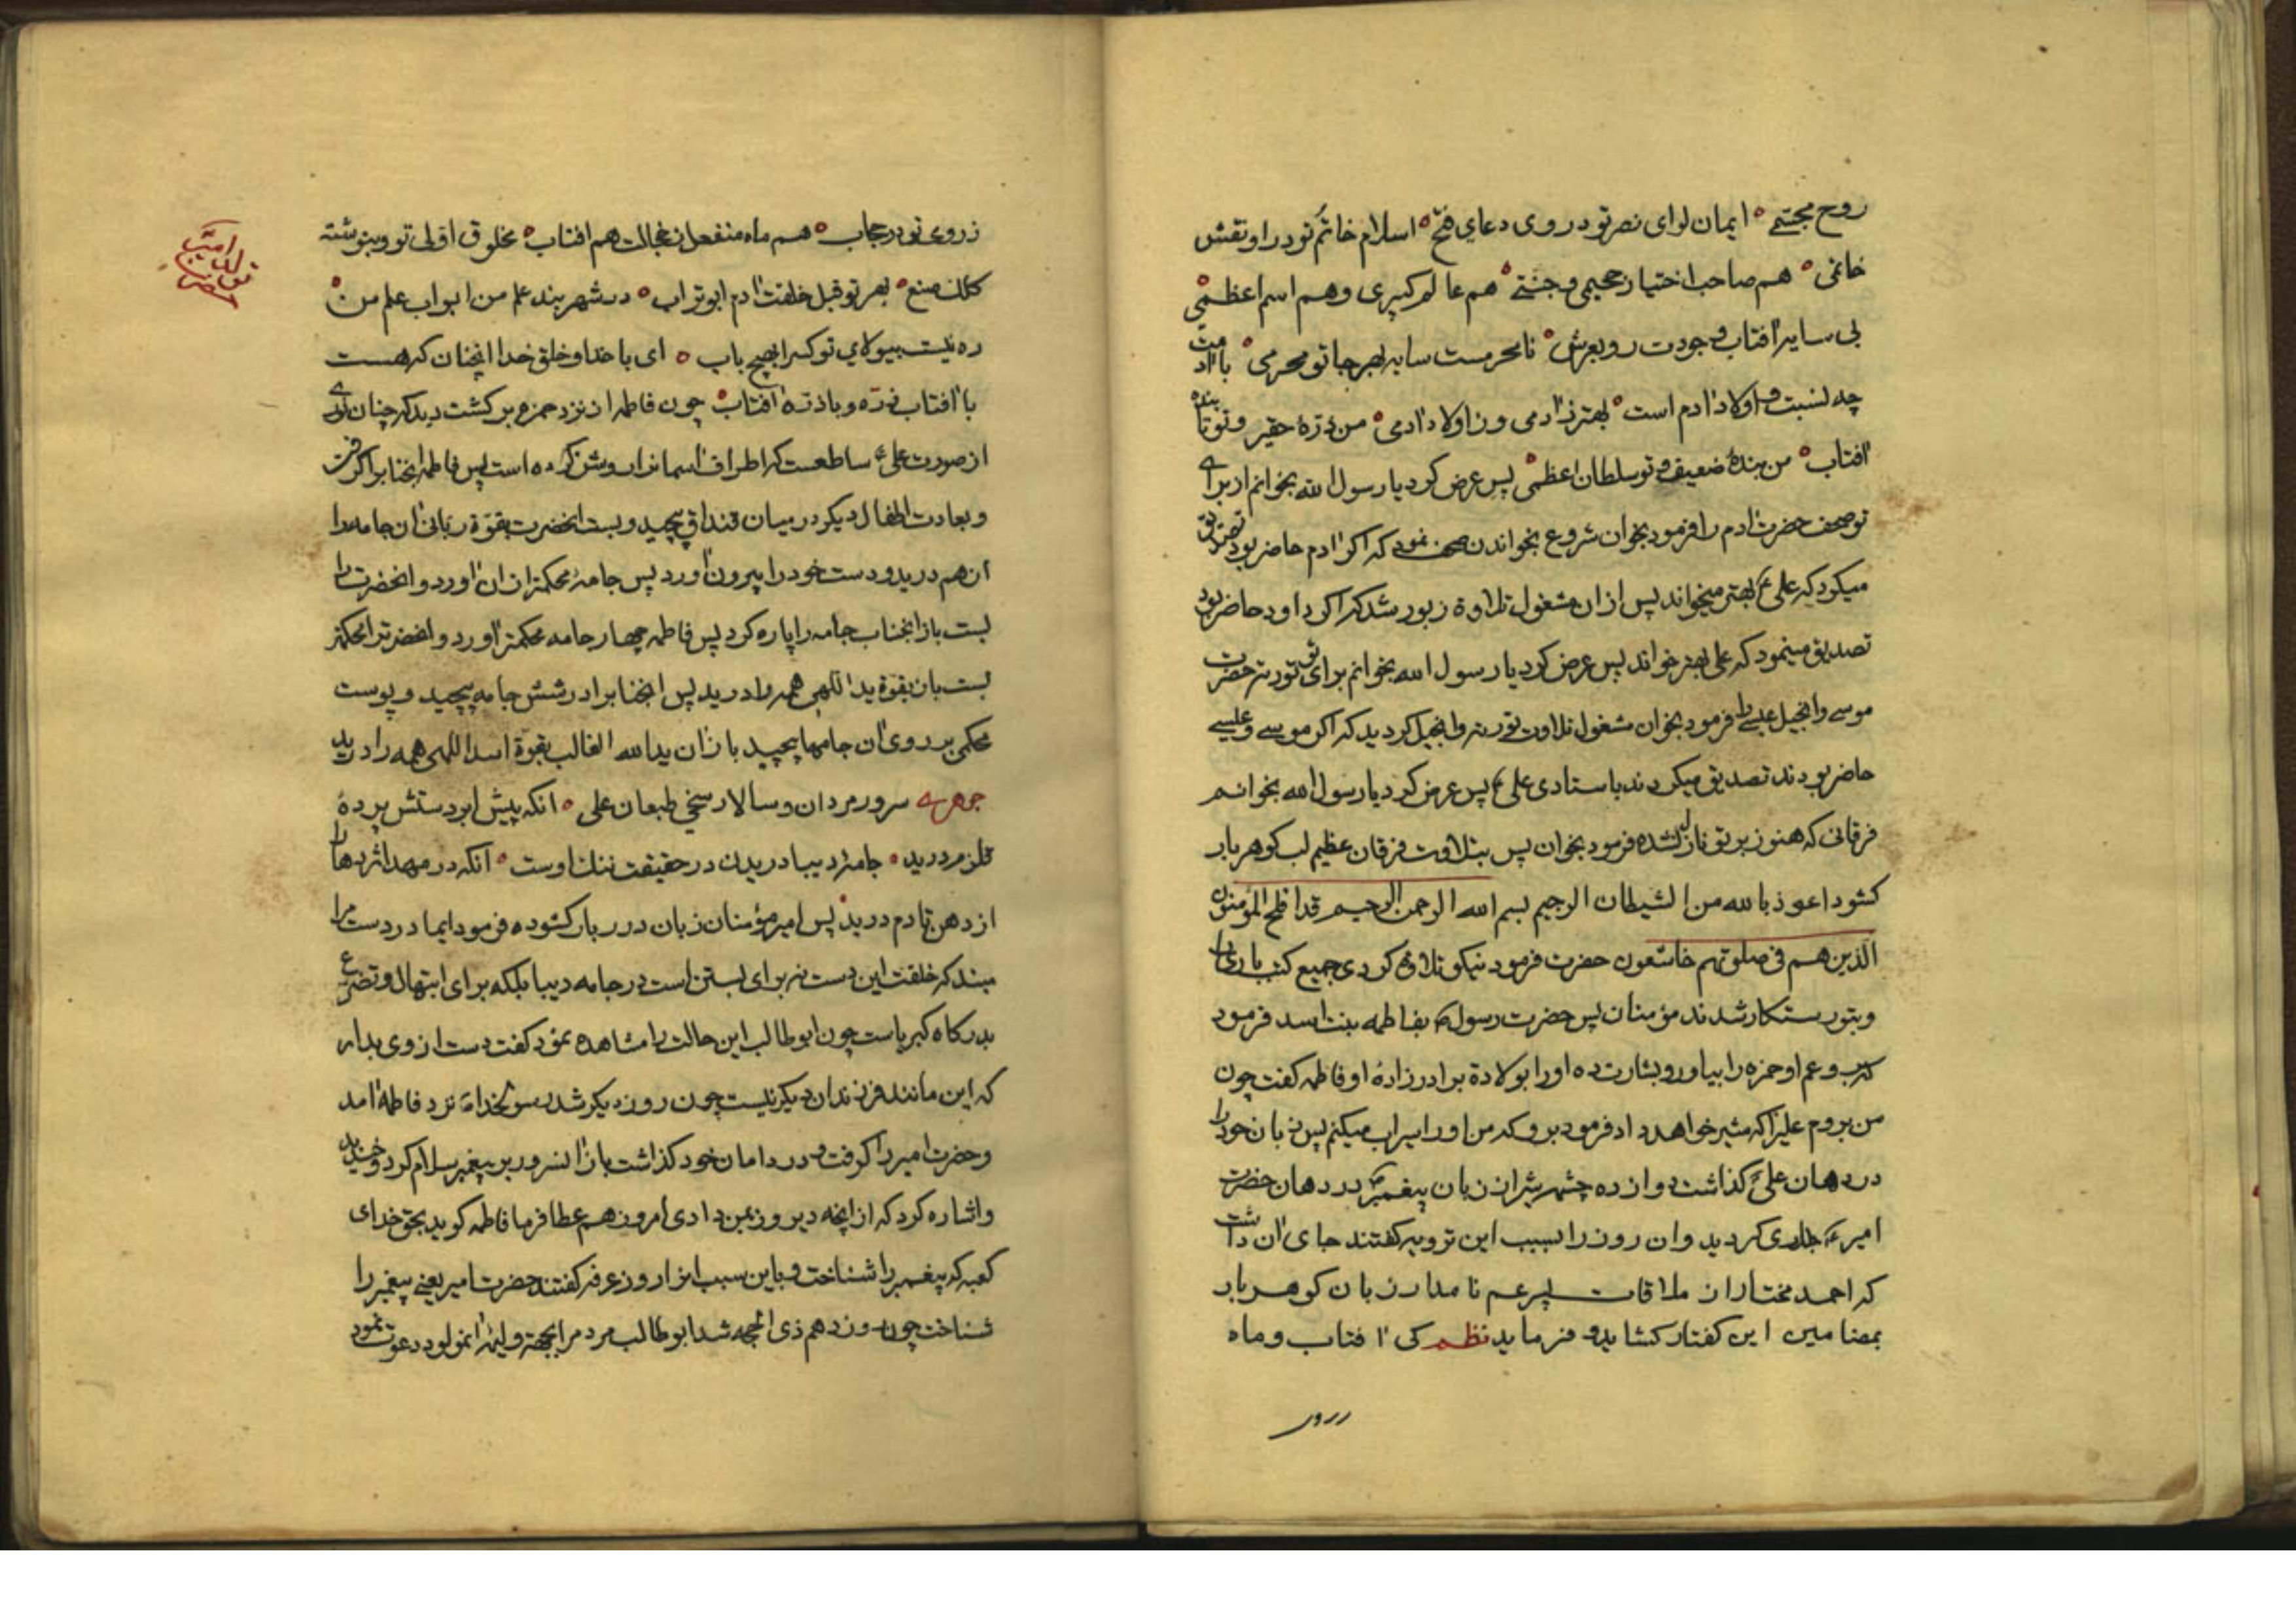 روح مجتبی ایمان لوای نصر تو در روی دعای فتح اسلام خاتم تو در او نقش
خاتمی هم صاحب اختیار جحیمی و جنتی هم عالم کبیری و هم اسم اعظمی
بی سایه آفتاب وجودت رو بعرش نامحرمست سایه بهر جا تو محرمی با آدمت
چه نسبت و اولاد آدم است بهتر ز آدمی و ز اولاد آدمی من ذرهٔ حقیر و تو تابنده
آفتاب من بندهٔ ضعیف و تو سلطان اعظمی پس عرض کرد یا رسول الله بخوانم از برای
تو صحف حضرت آدم را فرمود بخوان شروع بخواندن صحف نمود که اکر آدم حاضر بود تصدیق
میکرد که علی ع بهتر میخواند پس از آن مشغول تلاوة زبور شد که اکر داود حاضر بود
تصدیق مینمود که علی بهتر خواند پس عرض کرد یا رسول الله بخوانم برای تو توریة حضرت
موسی و انجیل عیسی را فرمود بخوان مشغول تلاوت توریة و انجیل کردید که اکر موسی و عیسی
حاضر بودند تصدیق میکردند باستادی علی ع پس عرض کرد یا رسول الله بخوانم
فرقانی که هنوز بر تو نازل نشده فرمود بخوان پس بتلاوت فرقان عظیم لب کوهر بار
کشود اعوذ بالله من الشیطان الرجیم بسم الله الرحمن الرحیم قد افلح المؤمنون
الذین هم فی صلوتهم خاشعون حضرت فرمود نیکو تلاوة کردی جمیع کتب باری را
و بتو رستکار شدند مؤمنان پس حضرت رسول ص بفاطمه بنت اسد فرمود
که برو عم او حمزه را بیاور و بشارت ده او را بولادة برادرزادهٔ او فاطمه کفت چون
من بروم علی را که شیر خواهد داد فرمود برو که من او را سیراب میکنم پس زبان خود را
در دهان علی ع کذاشت دوازده چشمه شیر از زبان پیغمبر ص در دهان حضرت
امیر ع جاری کردید و آن روز را بسبب این ترویه کفتند جای آن داشت
که احمد مختار از ملاقات پسر عم نامدار زبان کوهر بار
بمضامین این کفتار کشاید و فرماید نظم کی آفتاب و ماه
ز روی تو در حجاب هم ماه منفعل ز خجالت هم افتاب مخلوق اولی تو و بنوشته
کلک صنع بهر تو قبل خلقت آدم ابوتراب در شهربند علم من ابواب علم من
ره نیست بیولای تو کس را بهیچ باب ای با خدا و خلق خدا آنچنان که هست
با آفتاب ذره و با ذره آفتاب چون فاطمه از نزد حمزه برکشت دید که چنان نوری
از صورت علی ع ساطعست که اطراف آسمانرا روشن کرده است پس فاطمه آنجنابرا کرفت
و بعادت اطفال دیکر در میان قنداق پیچید و بست آنحضرت بقوة ربانی آن جامه را
از هم درید و دست خود را بیرون آورد پس جامهٔ محکمتر از آن آورد و آنحضرت را
بست باز آنجناب جامه را پاره کرد پس فاطمه چهار جامه محکمتر آورد و آنحضرترا محکمتر
بست باز بقوة ید اللهی همه را درید پس آنجنابرا در شش جامه پیچید و پوست
محکمی بر روی آن جامها پیچید باز آن یدالله الغالب بقوة اسد اللهی همه را درید
جوهری سرور مردان و سالار سخی طبعان علی آنکه پیش ابر دستش پردهٔ
قلزم درید جامهٔ دیبا دریدن در حقیقت ننک اوست آنکه در مهد اژدها را
از دهن تا دم درید پس امیر مؤمنان زبان درربار کشوده فرمود ایمادر دست مرا
مبند که خلقت این دست نه برای بستن است در جامه دیبا بلکه برای ابتهال و تضرع
بدرکاه کبریاست چون ابوطالب این حالت را مشاهده نمود کفت دست از وی بدار
که این مانند فرزندان دیکر نیست چون روز دیکر شد رسول خدا ص نزد فاطمه آمد
و حضرت امیر را کرفت و در دامان خود کذاشت باز آنسرور بر پیغمبر سلام کرد و خندید
و اشاره کرد که از آنچه دیروز بمن دادی امروز هم عطا فرما فاطمه کوید بحق خدای
کعبه که پیغمبر را شناخت و باین سبب آنرا روز عرفه کفتند حضرت امیر یعنی پیغمبر را
شناخت چون روز دهم ذی الحجه شد ابوطالب مردم را بجهة ولیمهٔ آنمولود دعوت نمود